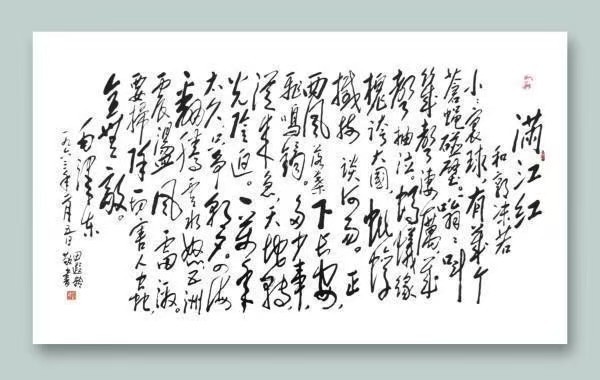 满江红
和郭沫若
小〻寰球,有几个
苍蝇碰壁。嗡〻叫
几声凄厉,几
声抽泣。蚂蚁缘
槐夸大国 蚍蜉
撼树谈何易。正
西风落叶下长安,
飞鸣镝。多少事,
从来急,天地转,
光阴迫。一万年
太久,只争朝夕。四海
翻腾云水怒,五洲
震荡风雷激。
要扫除一切害人虫,
全无敌。
毛泽东
一九六三年一月五日
敬书